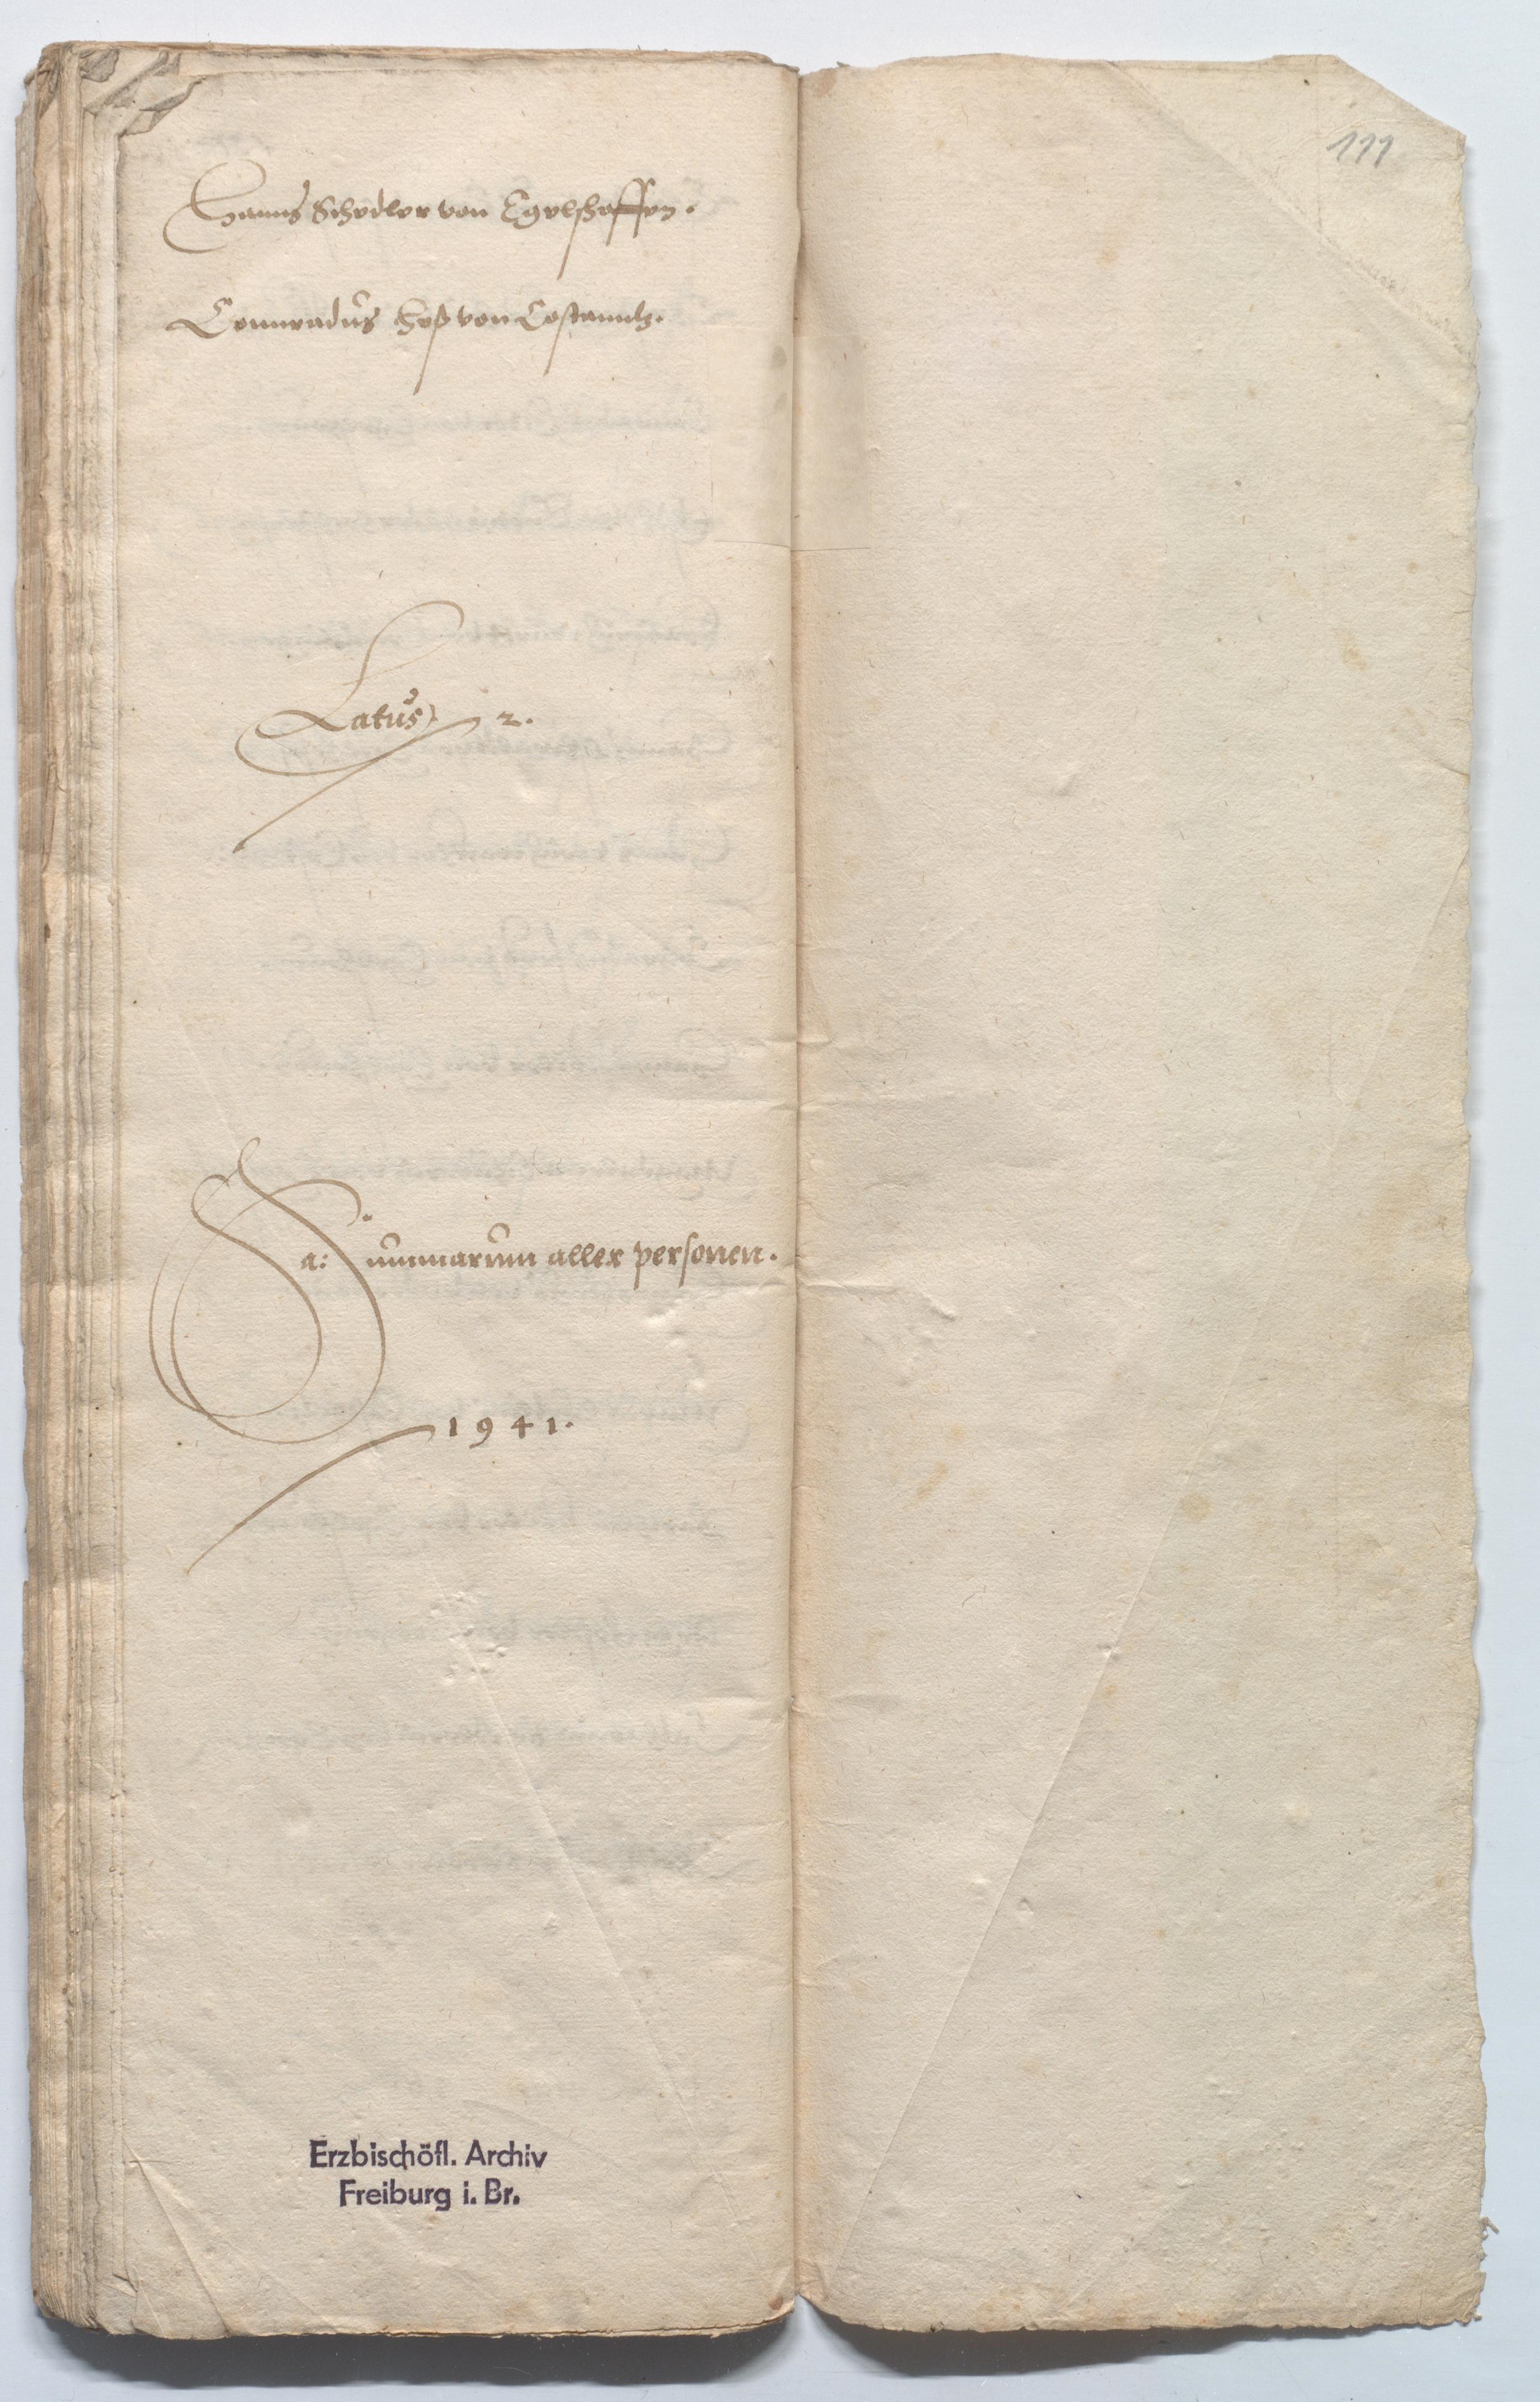 Hanns Schedler von Egelshoffen.
Connradus Heß von Costanntz.
Latus 2.
Sa: Summarum aller personen.
1941.
Erzbischöfl. Archiv
Freiburg i. Br.
111